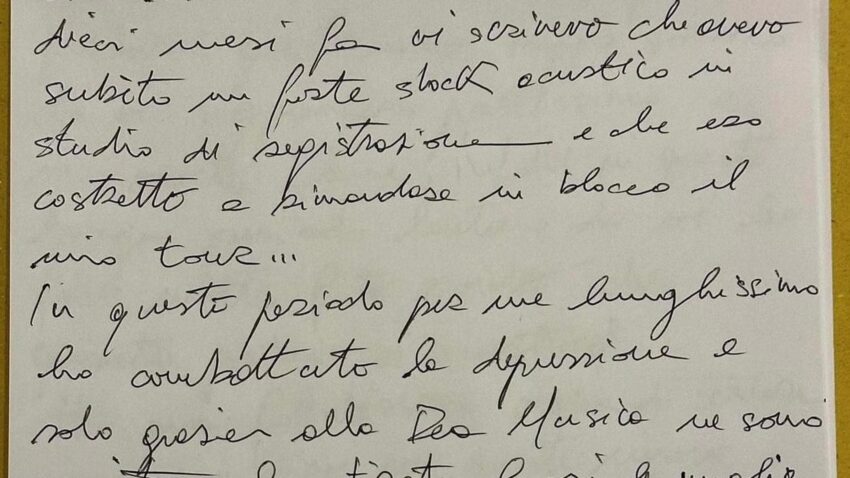 dieci mesi fa vi scrivevo che avevo
subìto un forte shock acustico in
studio di registrazione e che ero
costretto a rimandare in blocco il
mio tour...
In questo periodo per me lunghissimo
ho combattuto la depressione e
solo grazie alla Dea Musica ne sono